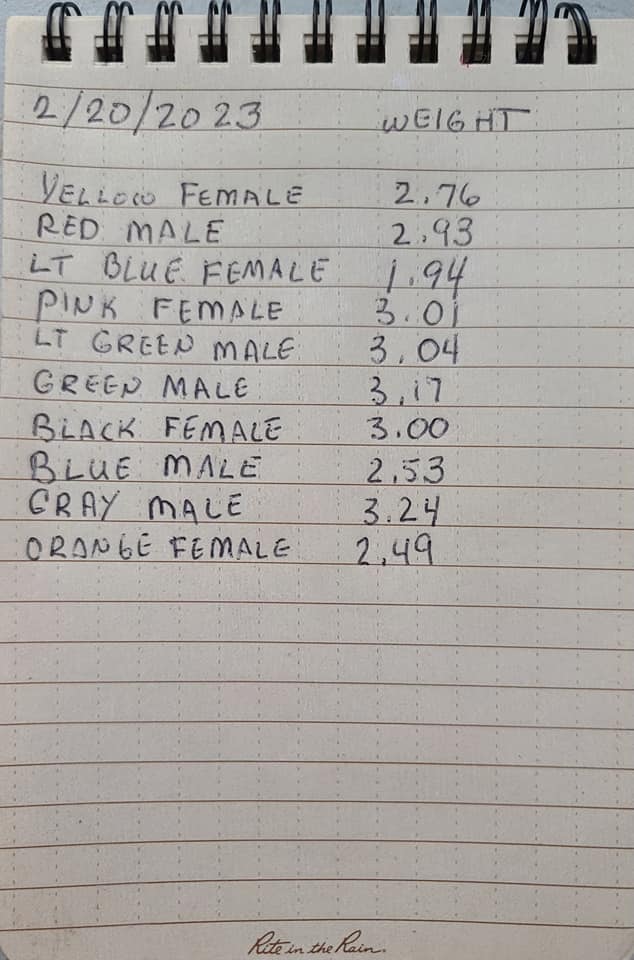 2/20/2023 WEIGHT
YELLOW FEMALE 2.76
RED MALE 2.93
LT BLUE FEMALE 1.94
PINK FEMALE 3.01
LT GREEN MALE 3.04
GREEN MALE 3.17
BLACK FEMALE 3.00
BLUE MALE 2.53
GRAY MALE 3.24
ORANGE FEMALE 2.49
Rite in the Rain.